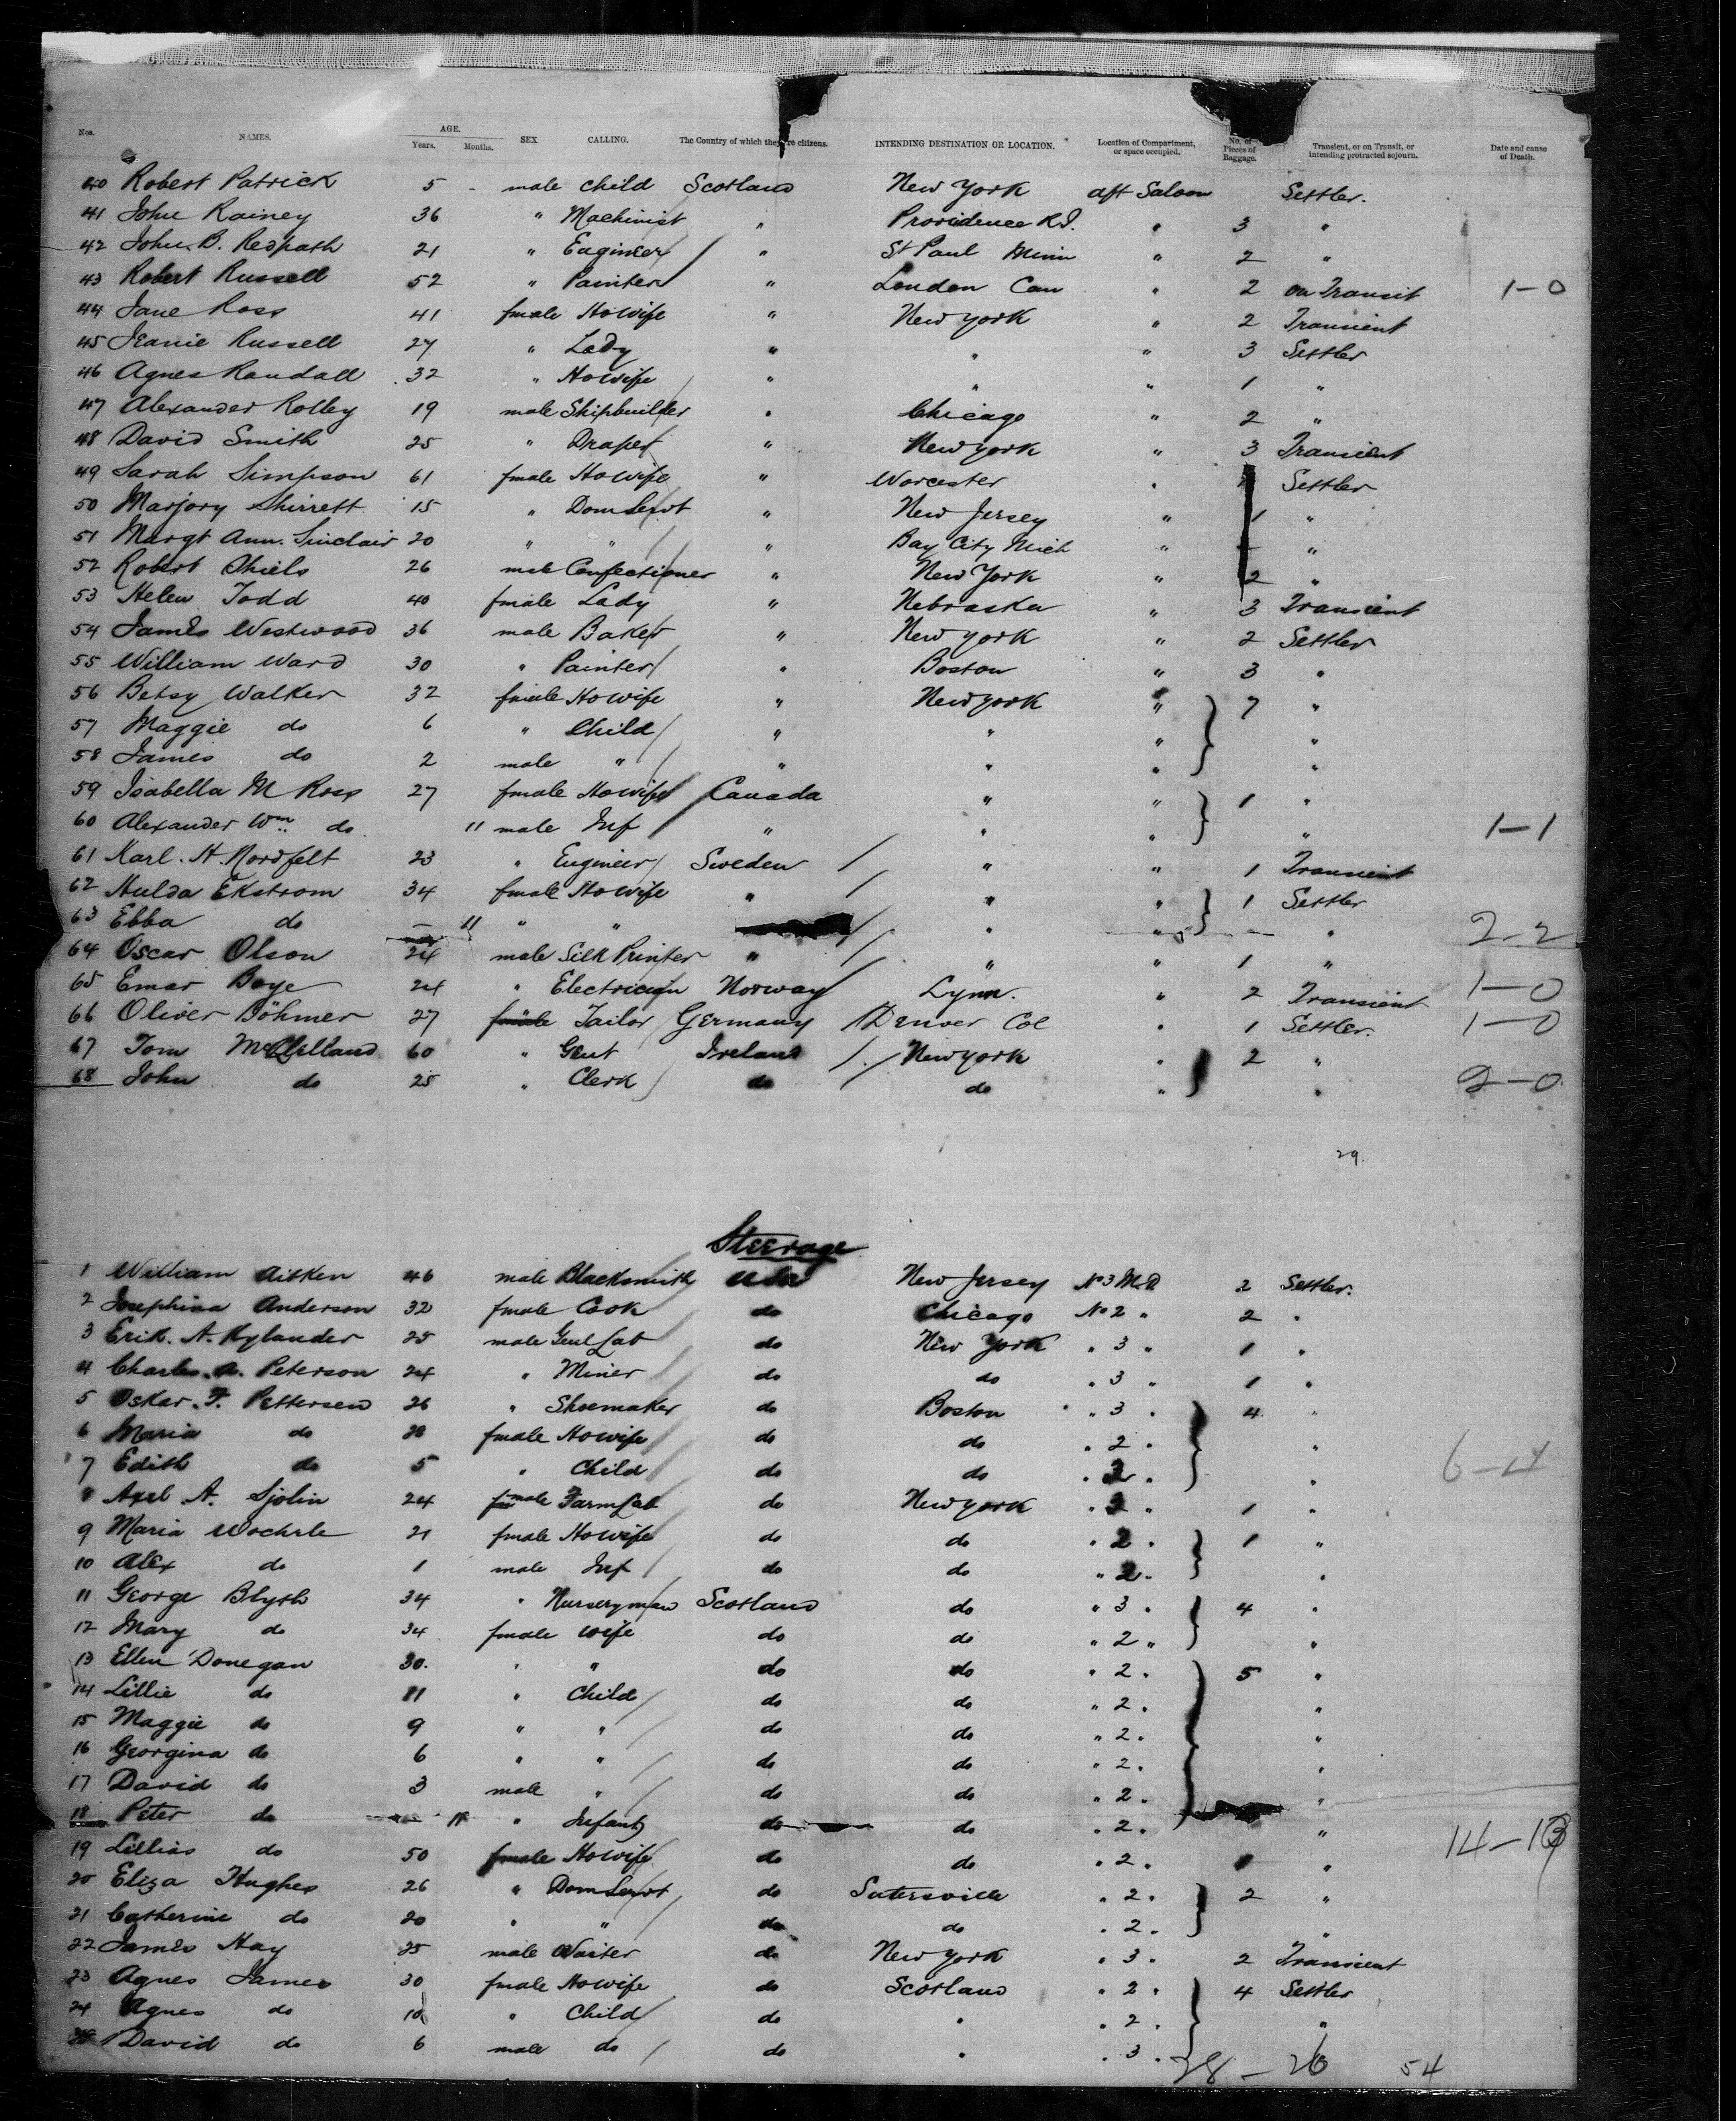 Nos. NAMES. AGE. Years. Months. SEX CALLING. The Country of which they re citizens. INTENDING DESTINATION OR LOCATION. Location of Compartment, or space occupied. No. of Pieces of Baggage. Transient, or on Transit, or intending protracted sojourn. Date and cause of Death.
40 Robert Patrick 5 - male child Scotland New York aft Saloon Settler.
41 John Rainey 36 " Machinist " Providence R.I. " 3 "
42 John B. Redpath 21 " Engineer " St Paul Minn " 2 "
43 Robert Russell 52 " Painter " London Can " 2 on Transit 1-0
44 Jane Ross 41 fmale Howife " New York " 2 Transient
45 Jeanie Russell 27 " Lady " " " 3 Settler
46 Agnes Randall 32 " Howife " " " 1 "
47 Alexander Rolley 19 male Shipbuilder " Chicago " 2 "
48 David Smith 25 " Draper " New York " 3 Transient
49 Sarah Simpson 61 fmale Howife " Worcester " Settler
50 Marjory Shirrett 15 " Dom Servt " New Jersey " 1 "
51 Margt Ann. Sinclair 20 " " " Bay City Mich " "
52 Robert Shiels 26 male Confectioner " New York " 2 "
53 Helen Todd 40 fmale Lady " Nebraska " 3 Transient
54 James Westwood 36 male Baker " New York " 2 Settler
55 William Ward 30 " Painter " Boston " 3 "
56 Betsy Walker 32 fmale Howife " New York " 7 "
57 Maggie do 6 " Child " " " "
58 James do 2 male " " " " "
59 Isabella M Ross 27 fmale Howife Canada " " 1 "
60 Alexander Wm do 11 male Inf " " " " 1-1
61 Karl. H. Nordfelt 23 " Engineer Sweden " " 1 Transient
62 Hulda Ekstrom 34 fmale Howife " " " 1 Settler
63 Ebba do - 11 " " " " " 2-2
64 Oscar Olson 24 male Silk Printer " " " 1 "
65 Emar Boye 24 " Electrician Norway Lynn. " 2 Transient 1-0
66 Oliver Böhmer 27 male Tailor Germany Denver Col " 1 Settler. 1-0
67 Tom McClelland 60 " Gent Ireland New York " 2 "
68 John do 25 " Clerk do do " " 2-0
29.
Steerage
1 William Aitken 46 male Blacksmith USA New Jersey No 3 M.D. 2 Settler.
2 Josephina Anderson 32 fmale Cook do Chicago No 2 " 2 "
3 Erik. A. Kylander 25 male Genl Lab do New York " 3 " 1 "
4 Charles. A. Peterson 24 " Miner do do " 3 " 1 "
5 Oskar. F. Pettersen 26 " Shoemaker do Boston " 3 " 4 "
6 Maria do 28 fmale Howife do do " 2 " "
7 Edith do 5 " Child do do " 2 " " 6-4
8 Axel A. Sjolin 24 male Farm Lab do New York " " 1 "
9 Maria Wochrle 21 fmale Howife do do " 2 " 1 "
10 Alex do 1 male Inf do do " 2 " "
11 George Blyth 34 " Nurseryman Scotland do " 3 " 4 "
12 Mary do 34 fmale wife do do " 2 " "
13 Ellen Donegan 30. " " do do " 2 " 5 "
14 Lillie do 11 " Child do do " 2 " "
15 Maggie do 9 " " do do " 2 " "
16 Georgina do 6 " " do do " 2 " "
17 David do 3 male " do do " 2 " "
18 Peter do 11 " Infant do do " 2 " "
19 Lillias do 50 fmale Howife do do " 2 " " 14-13
20 Eliza Hughes 26 " Dom Servt do Sutersville " 2 " 2 "
21 Catherine do 20 " " do do " 2 " "
22 James Hay 25 male Waiter do New York " 3 " 2 Transient
23 Agnes James 30 fmale Howife do Scotland " 2 " 4 Settler
24 Agnes do 10 " Child do " " 2 " "
25 David do 6 male do do " " 3 "
28 - 26 54